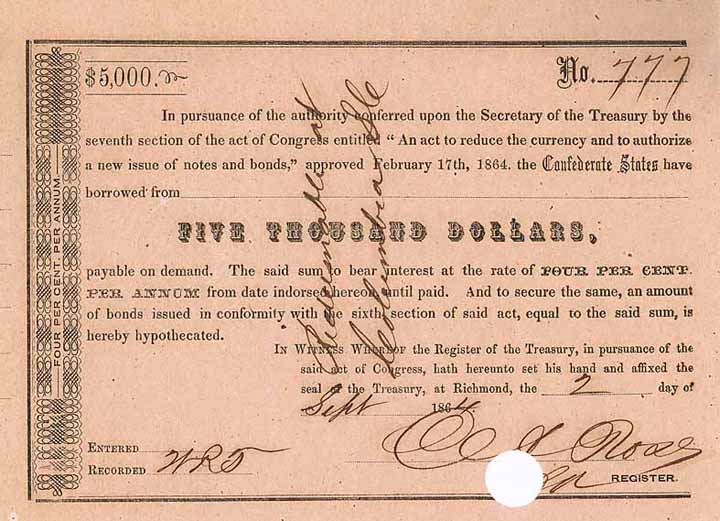 $5,000.
No. 777
In pursuance of the authority conferred upon the Secretary of the Treasury by the
seventh section of the act of Congress entitled “ An act to reduce the currency and to authorize
a new issue of notes and bonds,” approved February 17th, 1864. the Confederate States have
borrowed from
FIVE THOUSAND DOLLARS,
payable on demand. The said sum to bear interest at the rate of FOUR PER CENT.
PER ANNUM from date indorsed hereon until paid. And to secure the same, an amount
of bonds issued in conformity with the sixth section of said act, equal to the said sum, is
hereby hypothecated.
In Witness Whereof the Register of the Treasury, in pursuance of the
said act of Congress, hath hereunto set his hand and affixed the
seal of the Treasury, at Richmond, the 2 day of
Sept 1864.
Entered
Recorded WRT
REGISTER.
FOUR PER CENT. PER ANNUM
Redeemable at
Columbia SC